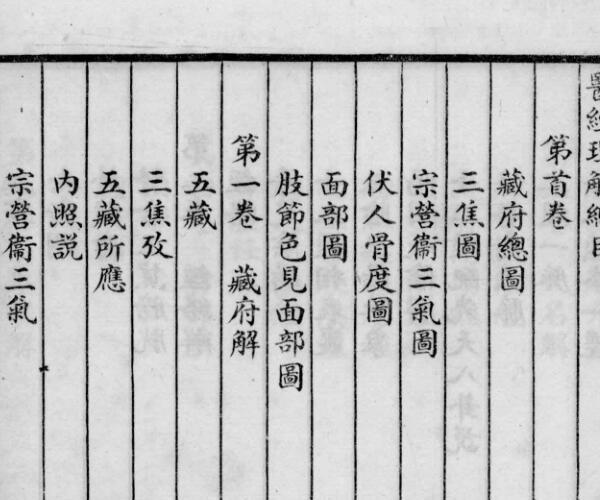 醫經理解總目
第首卷
藏府總圖
三焦圖
宗營衞三氣圖
伏人骨度圖
面部圖
肢節色見面部圖
第一卷 藏府解
五藏
三焦攷
五藏所應
內照説
宗營衞三氣